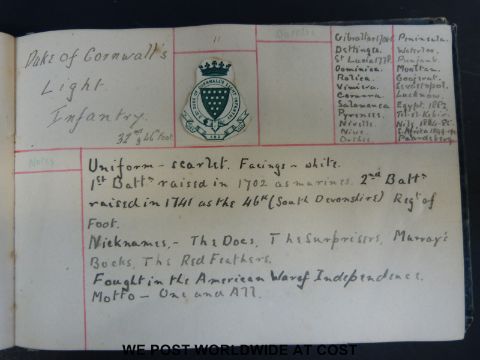 Duke of Cornwall's
Light
Infantry.
32nd & 46th Foot
11
Battles
Gibraltar 1704.
Dettingen
St Lucia 1778.
Dominica.
Rolica.
Vimiera
Corunna
Salamanca
Pyrenees
Nivelle
Nive.
Orthes
Peninsula.
Waterloo.
Punjaub
Mooltan
Goojerat.
Sevastopol.
Lucknow.
Egypt. 1882
Tel-el-Kebir
Nile. 1884-85
S. Africa 1899-
Paardeberg
Notes
Uniform - scarlet. Facings - white.
1st Battn raised in 1702 as marines. 2nd Battn
raised in 1741 as the 46th (South Devonshire) Regt of
Foot.
Nicknames, - The Docs, The Surprisers, Murray's
Bucks, The Red Feathers.
Fought in the American War of Independence.
Motto - One and All.
WE POST WORLDWIDE AT COST